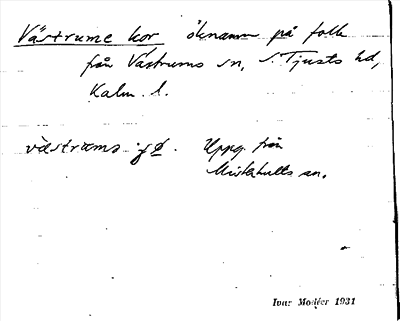 Västrume kor öknamn på folk
från Västrums sn, S. Tjusts hd,
Kalm. l.
västrams Uppg. från
Misterhults sn.
Ivar Modéer 1931